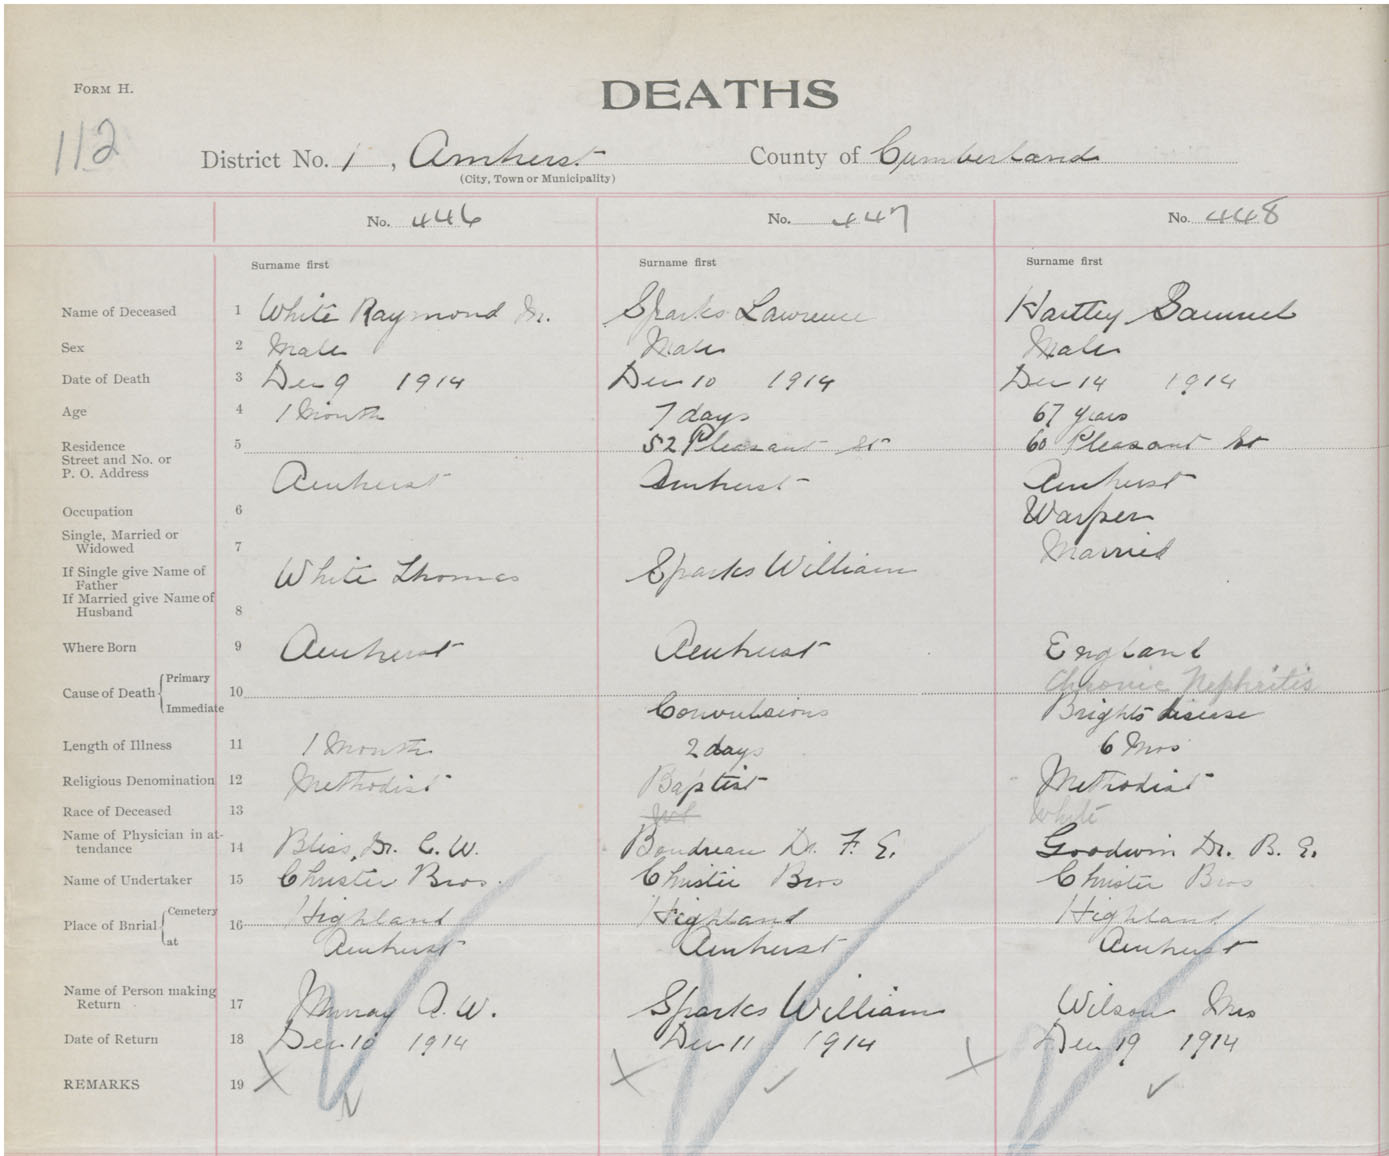 FORM H.
DEATHS
112
District No. 1, Amherst County of Cumberland
(City, Town or Municipality)
No. 446 No. 447 No. 448
Surname first Surname first Surname first
Name of Deceased 1 White Raymond Sparks Lawrence Hartley Samuel
Sex 2 Male Male Male
Date of Death 3 Dec 9 1914 Dec 10 1914 Dec 14 1914
Age 4 1 Month 7 days 67 years
Residence 5 52 Pleasant St 60 Pleasant St
Street and No. or
P. O. Address Amherst Amherst Amherst
Occupation 6 Warper
Single, Married or
Widowed 7 Married
If Single give Name of
Father White Thomas Sparks William
If Married give Name of
Husband 8
Where Born 9 Amherst Amherst England
Cause of Death { Primary 10 Chronic Nephritis
Immediate Convulsions Brights disease
Length of Illness 11 1 Month 2 days 6 Mos
Religious Denomination 12 Methodist Baptist Methodist
Race of Deceased 13 White
Name of Physician in at-
tendance 14 Bliss, Dr. C. W. Boudreau Dr. F. E. Goodwin Dr. B. E.
Name of Undertaker 15 Christie Bros. Christie Bros Christie Bros
Place of Bnrial { Cemetery 16 Highland Highland Highland
at Amherst Amherst Amherst
Name of Person making
Return 17 Murray A. W. Sparks William Wilson Mrs
Date of Return 18 Dec 10 1914 Dec 11 1914 Dec 19 1914
REMARKS 19